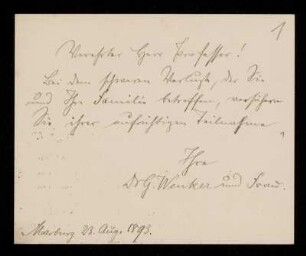 1
Verehrter Herr Professor!
Bei dem schweren Verluste, der Sie
und Ihre Familie betroffen, versichern
Sie ihrer aufrichtigen Teilnahme
Ihre
Dr G. Wenker und Frau.
Marburg 23. Aug. 1893.